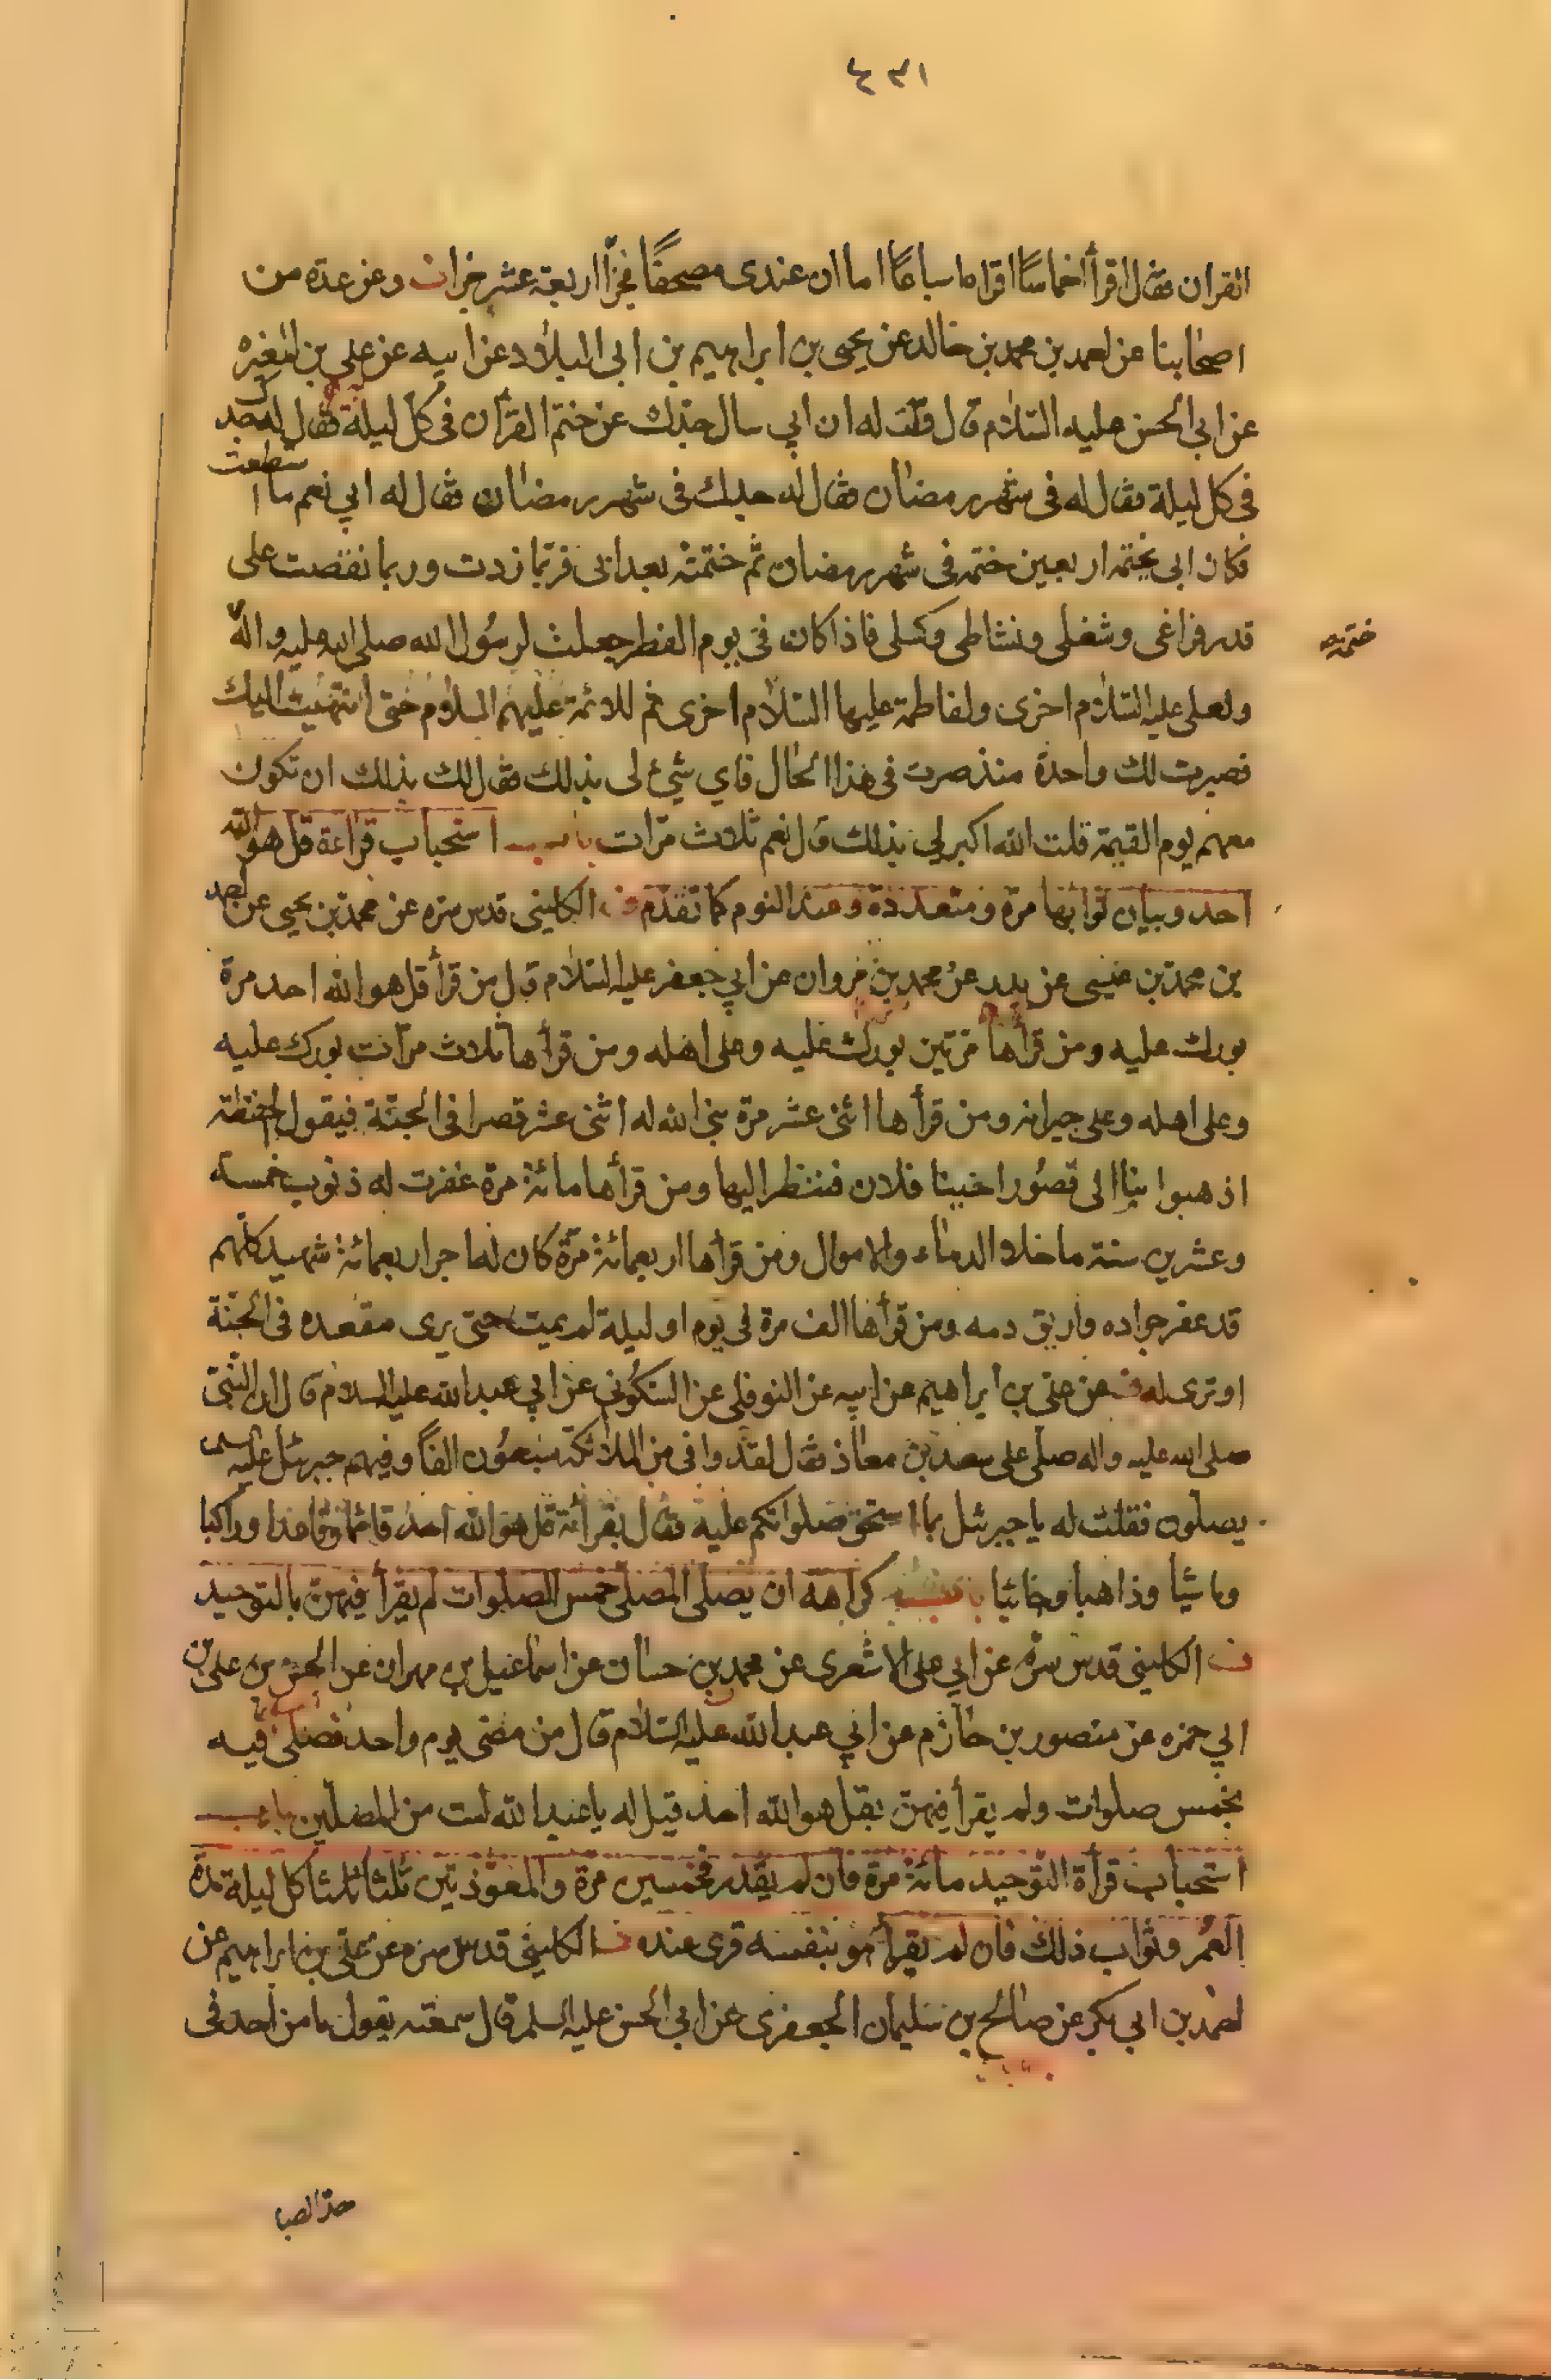 ٤٣١
القران فقال اقرأ اخماسًا اقراه اسباعًا اما ان عندى مصحفًا مجزّا اربعة عشر جزا ن وعن عدة من
اصحابنا عن احمد بن محمد بن خالد عن يحيى بن ابراهيم بن ابى البلاد عن ابيه عن على بن المغيرة
عن ابى الحسن عليه السّلام قال قلت له ان ابي سال جدّك عن ختم القرآن فى كل ليلة فقال له جدك
فى كل ليلة فقال له فى شهر رمضان فقال له جدك فى شهر رمضان فقال له ابي نعم ما استطعت
فكان ابى يختمه اربعين ختمة فى شهر رمضان ثم ختمته بعد ابى فربّما زدت وربما نقصت على
قدر فراغى وشغلى ونشاطى وكسلى فاذا كان فى يوم الفطر جعلت لرسول الله صلى الله عليه واله
ختمة
ولعلى عليه السّلام اخرى ولفاطمة عليها السّلام اخرى ثم للائمة عليهم السلام حتى انتهيت اليك
فصيرت لك واحدة منذ صرت فى هذا الحال فاي شيئ لى بذلك فقال لك بذلك ان تكون
معهم يوم القيمة قلت الله اكبر لي بذلك قال نعم ثلاث مرّات باب استحباب قراءة قل هو الله
احد وبيان ثوابها مرة ومتعددة وعند النوم كما تقدم ن الكلينى قدس سره عن محمد بن يحيى عن احمد
بن محمد بن عيسى عن بدر عن محمد بن مروان عن ابي جعفر عليه السّلام قال من قرأ قل هو الله احد مرة
بورك عليه ومن قرأها مرتين بورك عليه وعلى اهله ومن قرأها ثلاث مرات بورك عليه
وعلى اهله وعلى جيرانه ومن قرأها اثنى عشر مرة بنى الله له اثنى عشر قصرا فى الجنّة فيقول الحفظة
اذهبوا بنا الى قصور اخينا فلان فننظر اليها ومن قرأها مائة مرة غفرت له ذنوب خمسة
وعشرين سنة ما خلا الدماء والاموال ومن قرأها اربعمائة مرّة كان له اجر اربعمائة شهيد كلّهم
قد عقر جواده واريق دمه ومن قرأها الف مرة فى يوم او ليلة لم يمت حتى يرى مقعده فى الجنّة
او ترى له ن عن على بن ابراهيم عن ابيه عن النوفلى عن السكونى عن ابي عبد الله عليه السلام قال ان النبيّ
صلى الله عليه واله صلّى على سعد بن معاذ فقال لقد وافى من الملائكة سبعون الفًا وفيهم جبرئيل عليه السلم
يصلون فقلت له يا جبرئيل بما استحق صلواتكم عليه فقال بقرائة قل هو الله احد قائما وقاعدا وراكبا
وماشيا وذاهبا وجائيا باب كراهة ان يصلى المصلى خمس الصلوات لم يقرأ فيهن بالتوحيد
ن الكلينى قدس سرّه عن ابي على الاشعرى عن محمد بن حسان عن اسماعيل بن مهران عن الحسن بن على بن
ابي حمزه عن منصور بن حازم عن ابي عبد الله عليه السّلام قال من مضى به يوم واحد فصلى فيه
بخمس صلوات ولم يقرأ فيهن بقل هو الله احد قيل له يا عبد الله لست من المصلّين باب
استحباب قرأة التّوحيد مائة مرة فان لم يقدر فخمسين مرة والمعوّذتين ثلثا ثلثا كل ليلة مدّة
العمر وثواب ذلك فان لم يقرأ هو بنفسه قرى عنده ن الكلينى قدس سره عن على بن ابراهيم عن
احمد بن ابى بكر عن صالح بن سليمان الجعفرى عن ابى الحسن عليه السلم قال سمعته يقول ما من احد فى
حدّ الصبا